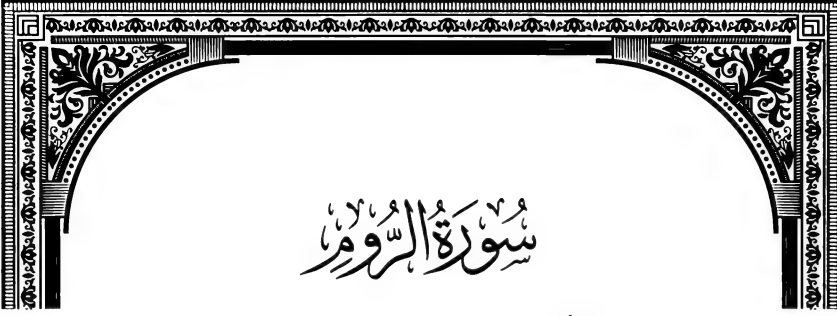 سُورَةُ الرُّومِ